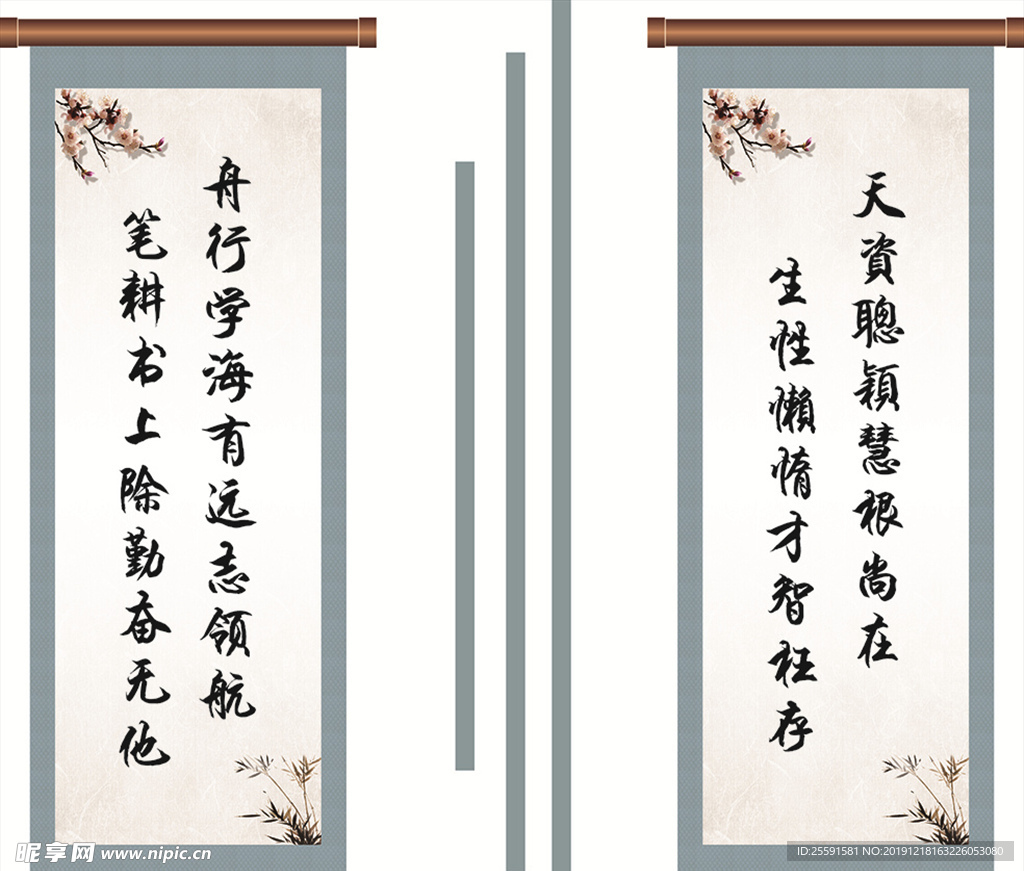 舟行学海有远志领航
笔耕书上除勤奋无他
天資聰穎慧根尚在
生性懶惰才智枉存
昵享网 www.nipic.cn
ID:25591581 NO:20191218163226053080